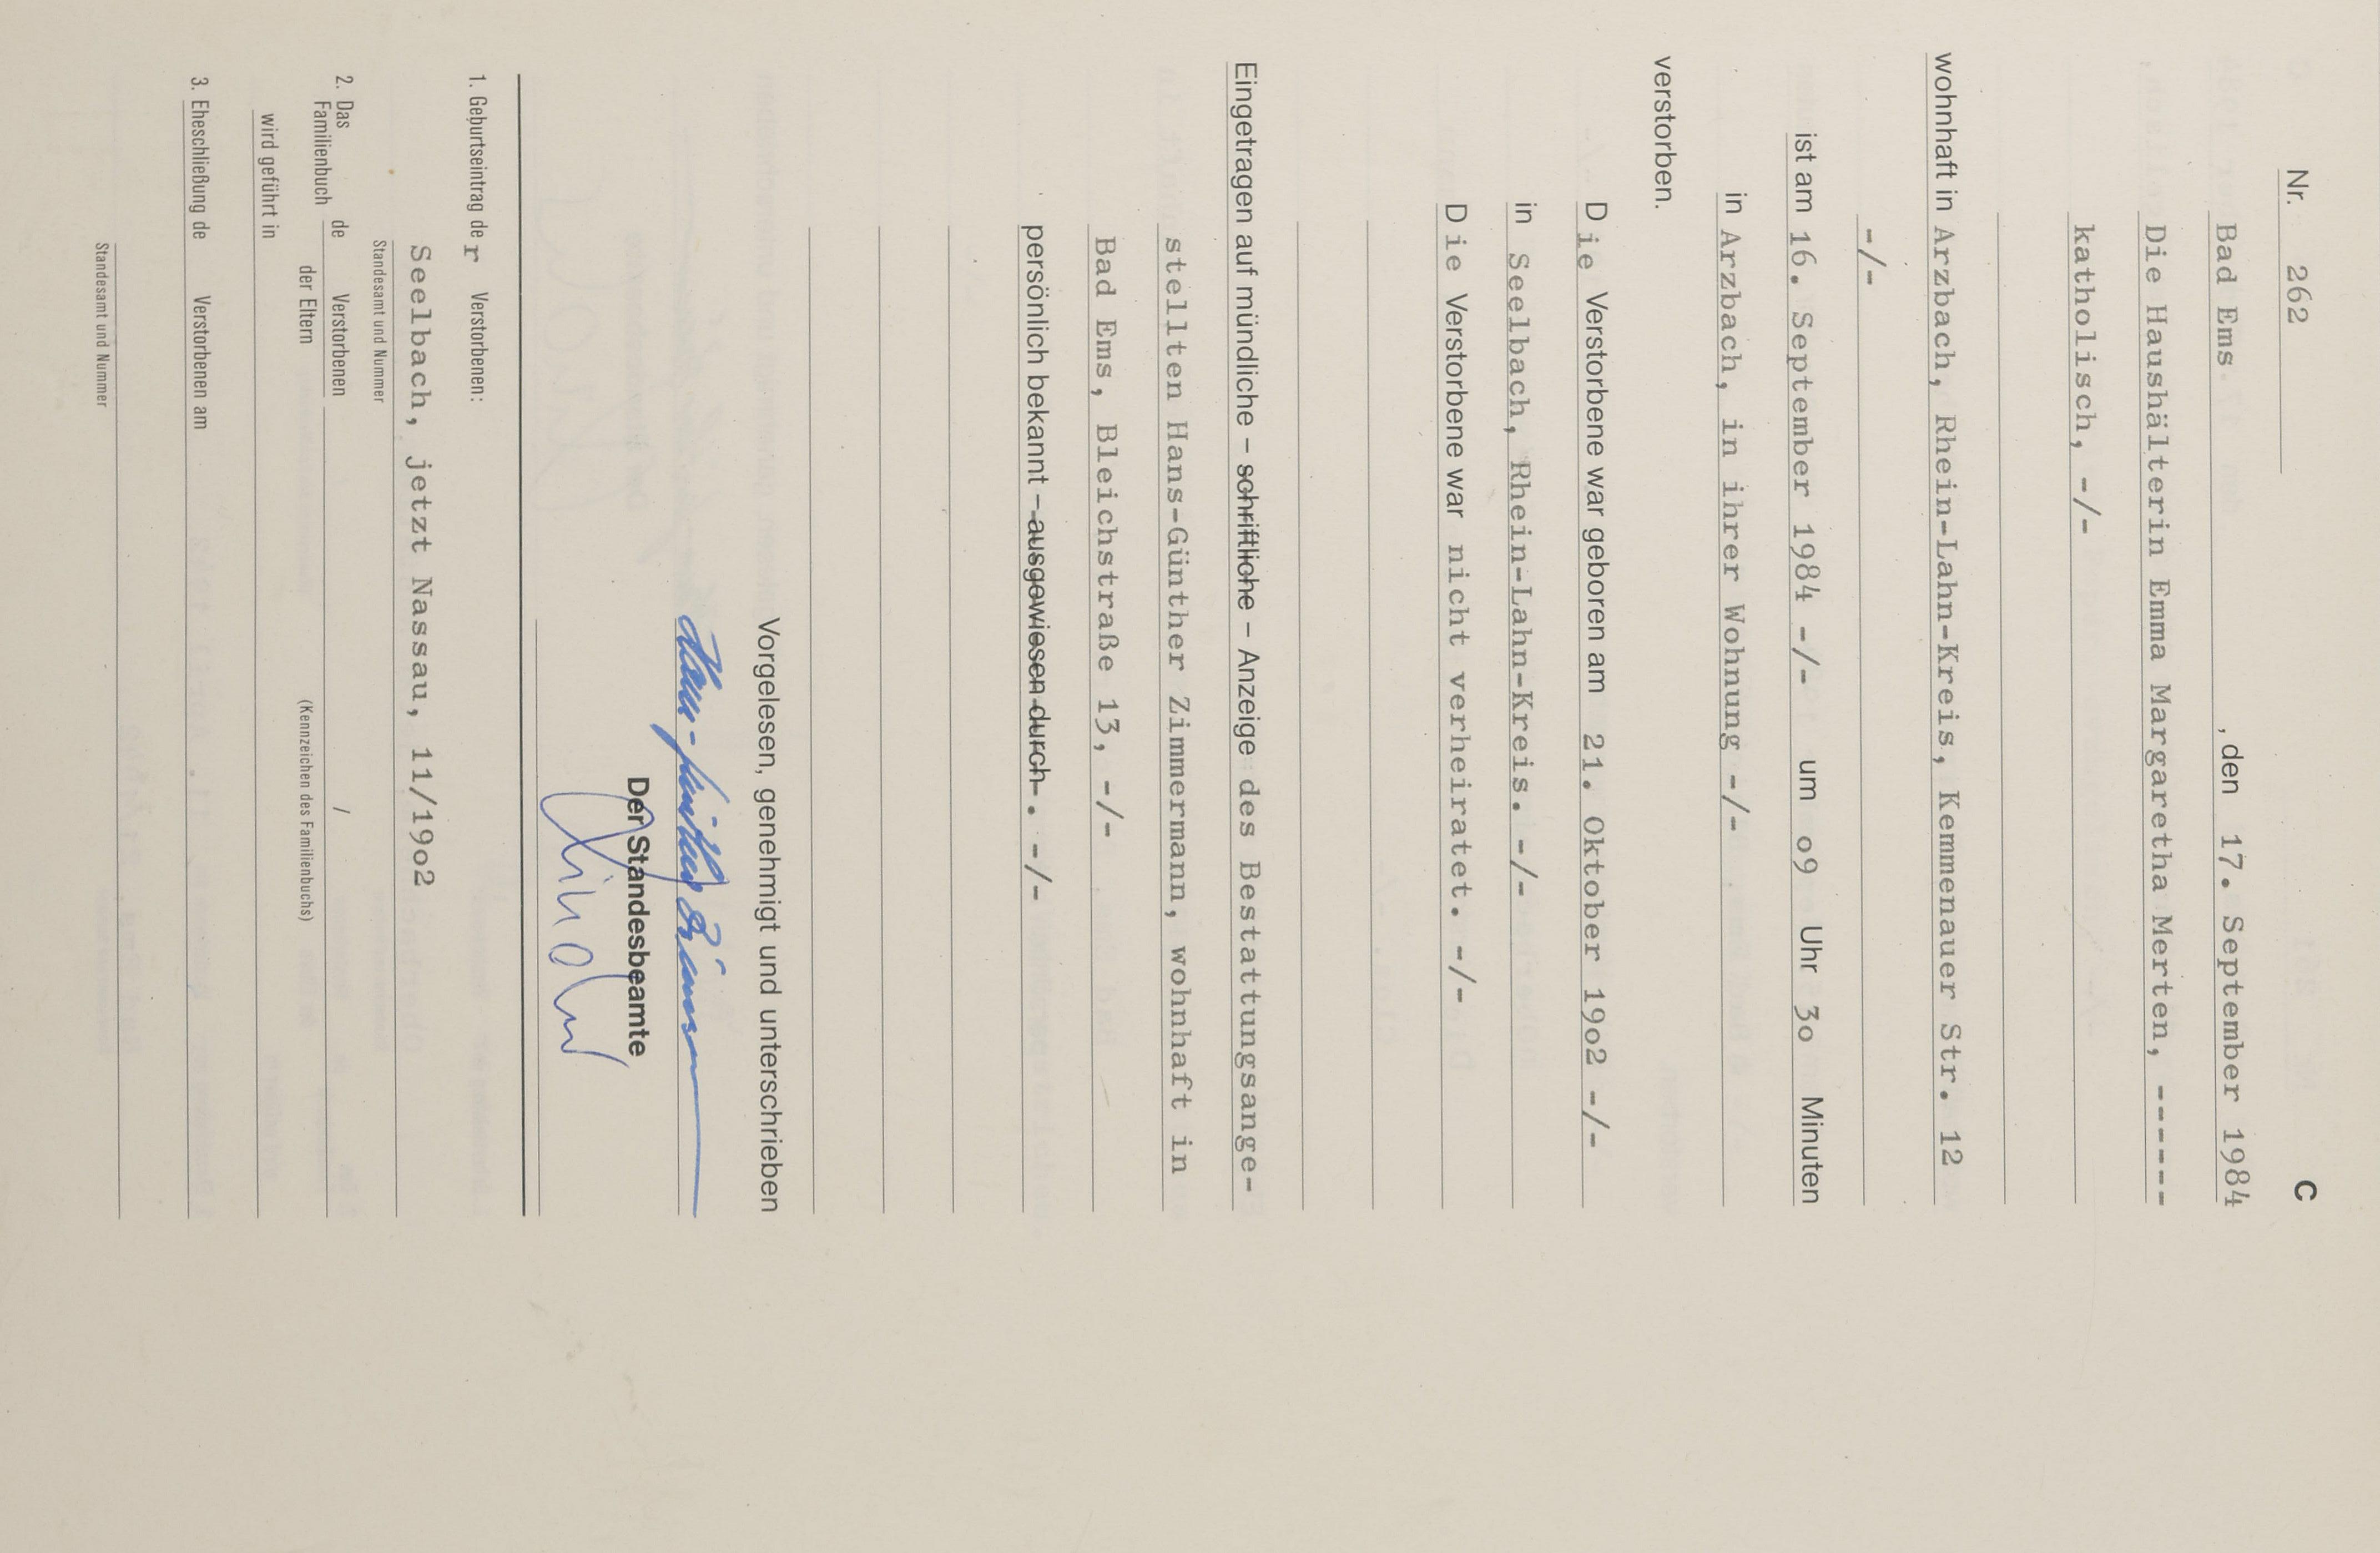 C
Nr. 262
Bad Ems , den 17. September 1984
Die Haushälterin Emma Margaretha Merten, ------
katholisch, -/-
wohnhaft in Arzbach, Rhein-Lahn-Kreis, Kemmenauer Str. 12
-/-
ist am 16. September 1984 -/- um o9 Uhr 3o Minuten
in Arzbach, in ihrer Wohnung -/-
verstorben.
Die Verstorbene war geboren am 21. Oktober 19o2 -/-
in Seelbach, Rhein-Lahn-Kreis. -/-
Die Verstorbene war nicht verheiratet. -/-
Eingetragen auf mündliche – schriftliche – Anzeige des Bestattungsange-
stellten Hans-Günther Zimmermann, wohnhaft in
Bad Ems, Bleichstraße 13, -/-
persönlich bekannt – ausgewiesen durch . -/-
Vorgelesen, genehmigt und unterschrieben
Hans-Günther Zimmermann
Der Standesbeamte
1. Geburtseintrag der Verstorbenen:
Seelbach, jetzt Nassau, 11/19o2
Standesamt und Nummer
2. Das Familienbuch de Verstorbenen / der Eltern
(Kennzeichen des Familienbuchs)
wird geführt in
3. Eheschließung de Verstorbenen am
Standesamt und Nummer